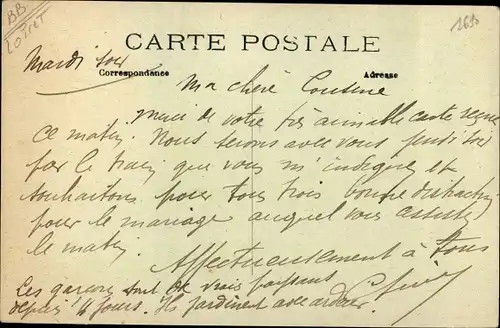 BB
LOIRET
1650
CARTE POSTALE
Mardi soir
Correspondance
Adresse
Ma chère Cousine
Merci de votre très aimable carte reçue
ce matin. Nous serons avec vous jeudi
par le train que vous m'indiquez et
souhaitons pour tous trois bonne distraction
pour le mariage auquel vous assistez
le matin.
Affectueusement à tous
Ces garçons sont de vrais paysans
depuis 4 jours. Ils jardinent avec ardeur.